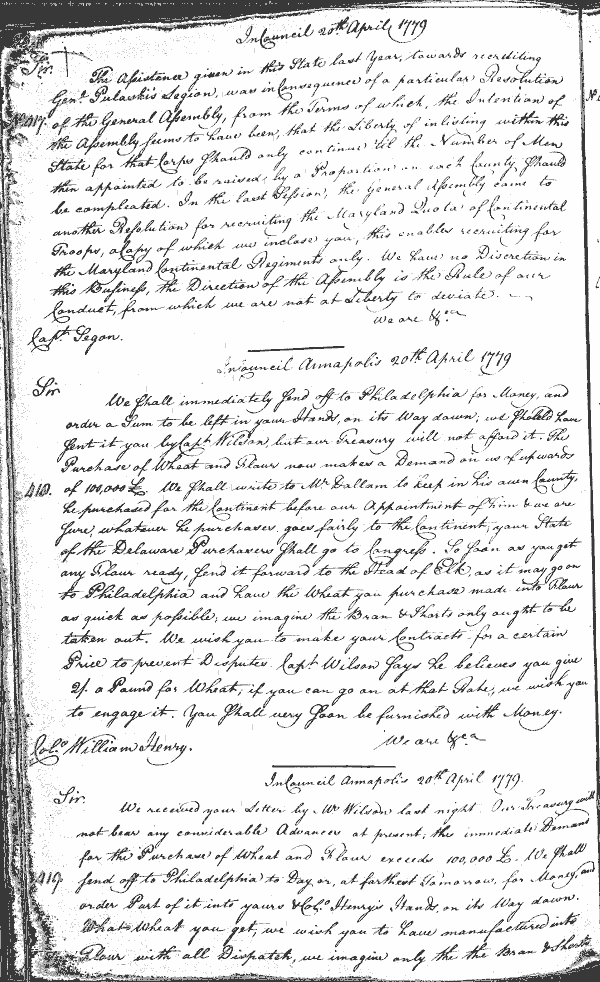 In Council 20th April 1779
Sir.
The Assistance given in this State last Year, towards recruiting
Genl. Pulaskis Legion, was in Consequence of a particular Resolution
No. 417. of the General Assembly, from the Terms of which, the Intention of
the Assembly seems to have been, that the Liberty of inlisting within this
State for that Corps should only continue 'til the Number of Men
then appointed to be raised, by a Proportion on each County, should
be compleated. In the last Session, the General Assembly came to
another Resolution for recruiting the Maryland Quota of Continental
Troops, a Copy of which we inclose you, this enables recruiting for
the Maryland Continental Regiments only. We have no Discretion in
this Business, the Direction of the Assembly is the Rule of our
Conduct, from which we are not at Liberty to deviate.
We are &ca
Capt. Segon.
In Council Annapolis 20th April 1779
Sir
We shall immediately send off to Philadelphia for Money, and
order a Sum to be left in your Hands, on its Way down; we should have
sent it you by Capt. Wilson, but our Treasury will not afford it. The
Purchase of Wheat and Flour now makes a Demand on us of upwards
418. of 100,000 £. We shall write to Mr. Dallam to keep in his own County,
he purchased for the Continent before our Appointment of him & we are
sure, whatever he purchases, goes fairly to the Continent, your State
of the Delaware Purchasers shall go to Congress. So soon as you get
any Flour ready, send it forward to the Head of Elk, as it may go on
to Philadelphia and have the Wheat you purchase made into Flour
as quick as possible; we imagine the Bran & Shorts only ought to be
taken out. We wish you to make your Contracts for a certain
Price to prevent Disputes. Capt. Wilson says he believes you give
2/ a Pound for Wheat; if you can go on at that Rate, we wish you
to engage it. You shall very soon be furnished with Money.
We are &ca
Colo. William Henry.
In Council Annapolis 20th April 1779.
Sir.
We received your Letter by Mr. Wilson last night. Our Treasury will
not bear any considerable Advances at present; the immediate Demand
for the Purchase of Wheat and Flour exceeds 100,000 £. We shall
419. send off to Philadelphia to Day, or, at farthest Tomorrow, for Money, and
order Part of it into yours & Colo. Henry's Hands, on its Way down.
What Wheat you get, we wish you to have manufactured into
Flour with all Dispatch, we imagine only the the Bran & Shorts